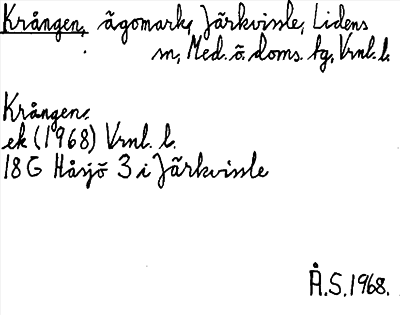 Krången, ägomark, Järkvissle, Lidens
sn, Med. ö. doms. tg, Vrnl. l.
Krången.
ek (1968) Vrnl. l.
18 G Håsjö 3 i Järkvissle
Å.S. 1968.